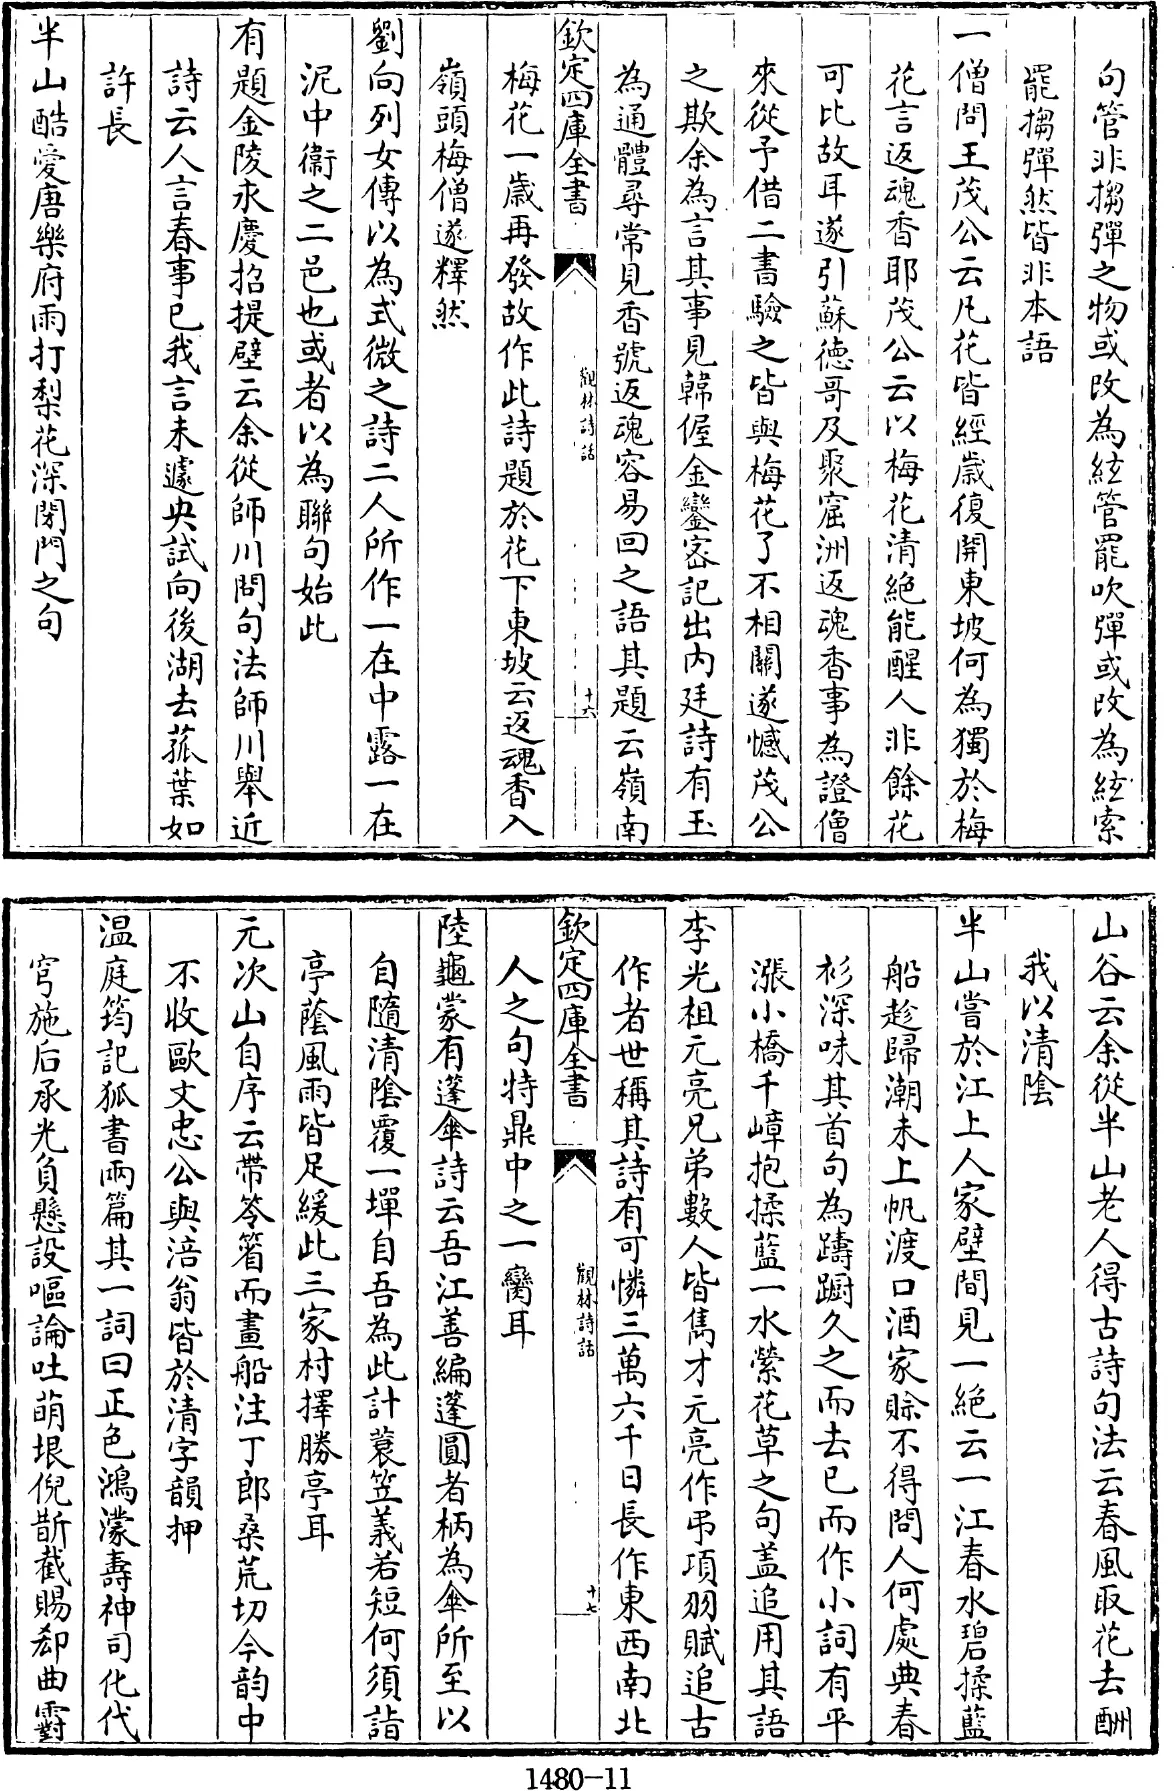 句管非搊彈之物或改為絃管罷吹彈或改為絃索
罷搊彈然皆非本語
一僧問王茂公云凡花皆經歲復開東坡何為獨於梅
花言返魂香耶茂公云以梅花清絶能醒人非餘花
可比故耳遂引蘇德哥及聚窟洲返魂香事為證僧
來從予借二書驗之皆與梅花了不相關遂憾茂公
之欺余為言其事見韓偓金鑾宻記出内廷詩有玉
為通體尋常見香號返魂容易回之語其題云嶺南
欽定四庫全書
觀林詩話
十六
梅花一歲再發故作此詩題於花下東坡云返魂香入
嶺頭梅僧遂釋然
劉向列女傳以為式微之詩二人所作一在中露一在
泥中衞之二邑也或者以為聯句始此
有題金陵永慶招提壁云余從師川問句法師川舉近
詩云人言春事已我言未遽央試向後湖去菰葉如
許長
半山酷愛唐樂府雨打梨花深閉門之句
山谷云余從半山老人得古詩句法云春風取花去酬
我以清陰
半山嘗於江上人家壁間見一絶云一江春水碧揉藍
船趁歸潮未上帆渡口酒家賒不得問人何處典春
衫深味其首句為躊躕久之而去已而作小詞有平
漲小橋千嶂抱揉藍一水縈花草之句盖追用其語
李光祖元亮兄弟數人皆雋才元亮作弔項羽賦追古
作者世稱其詩有可憐三萬六千日長作東西南北
欽定四庫全書
觀林詩話
十七
人之句特鼎中之一臠耳
陸龜蒙有蓬傘詩云吾江善編蓬圓者柄為傘所至以
自隨清陰覆一墠自吾為此計蓑笠義若短何須詣
亭蔭風雨皆足緩此三家村擇勝亭耳
元次山自序云帶笭箵而畫船注丁郎桑荒切今韵中
不收歐文忠公與涪翁皆於清字韻押
温庭筠記狐書兩篇其一詞曰正色鴻濛壽神司化代
穹施后承光負懸設嘔論吐萌垠倪散截賜郤曲霨
1480-11